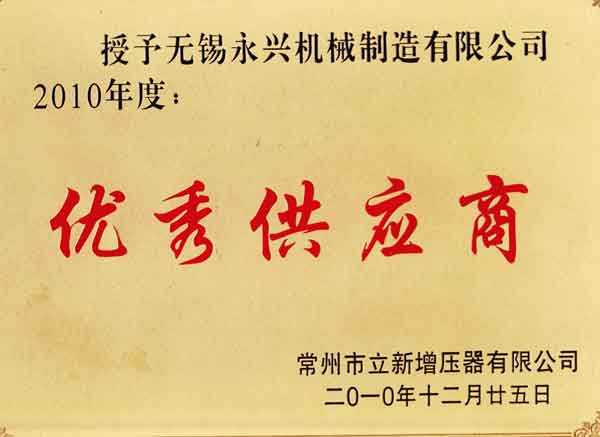 授予无锡永兴机械制造有限公司
2010年度：
优秀供应商
常州市立新增压器有限公司
二0一0年十二月廿五日